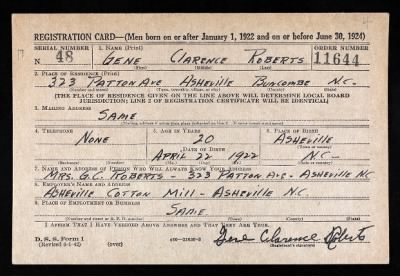 REGISTRATION CARD—(Men born on or after January 1, 1922 and on or before June 30, 1924)
SERIAL NUMBER 1. NAME (Print) ORDER NUMBER
N 48 GENE CLARENCE ROBERTS 11644
(First) (Middle) (Last)
2. PLACE OF RESIDENCE (Print)
323 PATTON AVE ASHEVILLE BUNCOMBE N.C.
(Number and street) (Town, township, village, or city) (County) (State)
[THE PLACE OF RESIDENCE GIVEN ON THE LINE ABOVE WILL DETERMINE LOCAL BOARD
JURISDICTION; LINE 2 OF REGISTRATION CERTIFICATE WILL BE IDENTICAL]
3. MAILING ADDRESS
SAME
4. TELEPHONE 5. AGE IN YEARS 6. PLACE OF BIRTH
NONE 20 ASHEVILLE
DATE OF BIRTH
APRIL 22 1922 N.C.
(Exchange) (Number) (Mo.) (Day) (Yr.) (State or country)
7. NAME AND ADDRESS OF PERSON WHO WILL ALWAYS KNOW YOUR ADDRESS
MRS. G.C. ROBERTS - 323 PATTON AVE - ASHEVILLE NC
8. EMPLOYER'S NAME AND ADDRESS
ASHEVILLE COTTON MILL - ASHEVILLE N.C.
9. PLACE OF EMPLOYMENT OR BUSINESS
SAME
(Number and street or R. F. D. number) (Town) (County) (State)
I AFFIRM THAT I HAVE VERIFIED ABOVE ANSWERS AND THAT THEY ARE TRUE.
D. S. S. Form 1
(Revised 6-1-42) (over) Gene Clarence Roberts
(Registrant's signature)